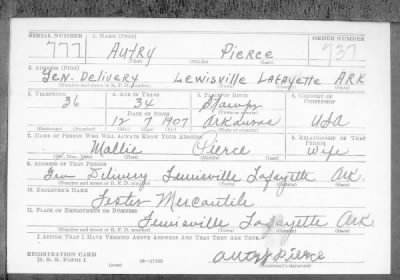 SERIAL NUMBER 1. NAME (Print) ORDER NUMBER
777 AUTRY PIERCE 737
(First) (Middle) (Last)
2. ADDRESS (Print)
GEN. DELIVERY LEWISVILLE LAFAYETTE ARK.
(Number and street or R. F. D. number) (Town) (County) (State)
3. TELEPHONE 4. AGE IN YEARS 5. PLACE OF BIRTH 6. COUNTRY OF CITIZENSHIP
36 34 Stamps
DATE OF BIRTH
12 7 1907 Arkansas USA
(Exchange) (Number) (Mo.) (Day) (Yr.) (State or country)
7. NAME OF PERSON WHO WILL ALWAYS KNOW YOUR ADDRESS 8. RELATIONSHIP OF THAT PERSON
Mallie Pierce Wife
(Mr., Mrs., Miss) (First) (Middle) (Last)
9. ADDRESS OF THAT PERSON
Gen Delivery Lewisville Lafayette Ark.
(Number and street or R. F. D. number) (Town) (County) (State)
10. EMPLOYER'S NAME
Lester Mercantile
11. PLACE OF EMPLOYMENT OR BUSINESS
Lewisville Lafayette Ark
(Number and street or R. F. D. number) (Town) (County) (State)
I AFFIRM THAT I HAVE VERIFIED ABOVE ANSWERS AND THAT THEY ARE TRUE.
REGISTRATION CARD
D. S. S. FORM 1 (over) 16-17105 Autry Pierce
(Registrant's signature)